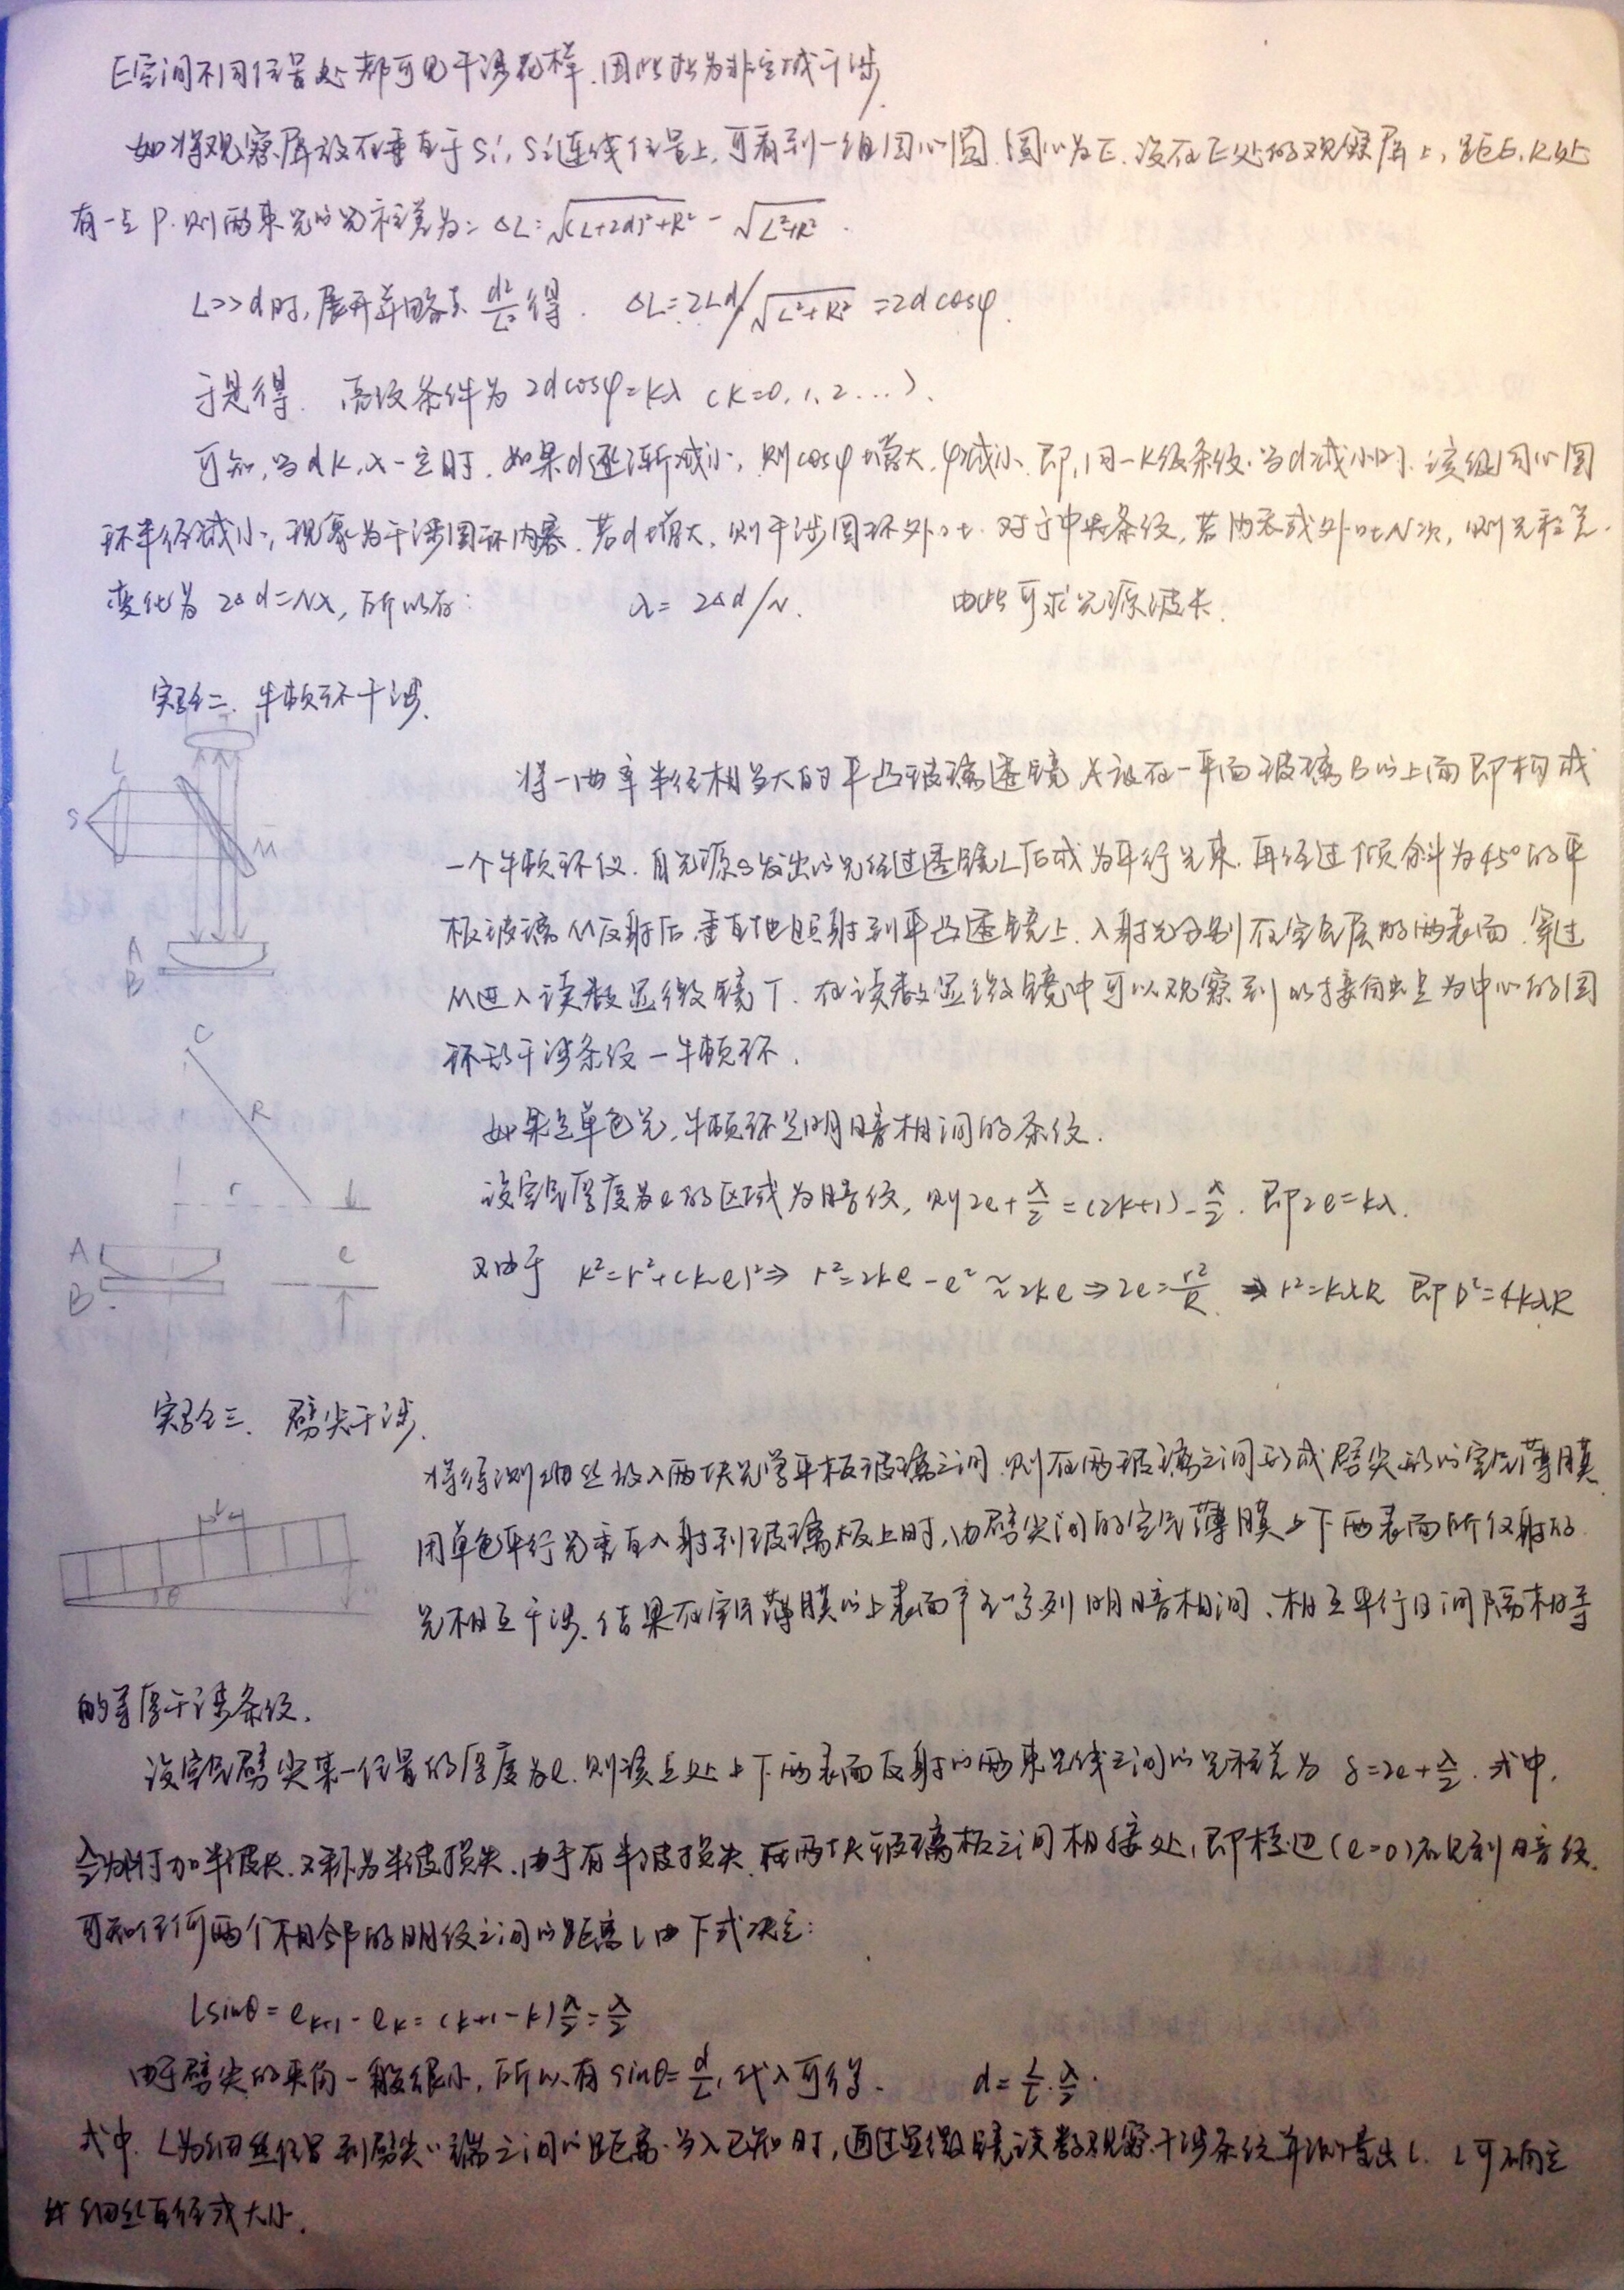 E空间不同位置处都可见干涉花样.因此称为非定域干涉.
如将观察屏放在垂直于S₁', S₂'连线位置上,可看到一组同心圆.圆心为E.设在E处的观察屏上,距E,R处
有一点P.则两束光的光程差为: ΔL=√((L+2d)²+R²) - √(L²+R²).
L>>d时,展开并略去 d²/L² 得. ΔL=2Ld/√(L²+R²) =2dcosφ.
于是得. 亮纹条件为 2dcosφ=kλ (k=0,1,2...).
可知,当 k,λ一定时.如果d逐渐减小,则cosφ增大,φ减小.即,同一k级条纹.当d减小时.该组同心圆
环半径减小,现象为干涉圆环内塞.若d增大,则干涉圆环外吐.对于中央条纹,若内塞或外吐N次,则光程差.
变化为2Δd=Nλ,所以有: λ=2Δd/N. 由此可求光源波长.
实验二. 牛顿环干涉.
L
S
M
将一曲率半径相当大的平凸玻璃透镜A放在一平面玻璃B的上面即构成
一个牛顿环仪.自光源S发出的光经过透镜L后成为平行光束.再经过倾斜为45°的平
板玻璃M反射后,垂直地照射到平凸透镜上.入射光分别在空气层的两表面.穿过
A
B
M进入读数显微镜T.在读数显微镜中可以观察到以接触点为中心的圆
环形干涉条纹—牛顿环.
C
R
如果是单色光,牛顿环是明暗相间的条纹.
r
设空气厚度为e的区域为暗纹,则2e+λ/2=(2k+1)·λ/2.即2e=kλ.
A
B
e
又由于 R²=r²+(R-e)²⇒ r²=2Re-e²≈2Re⇒2e=r²/R. ⇒r²=kλR 即D²=4kλR
实验三. 劈尖干涉.
将待测细丝放入两块光学平板玻璃之间.则在两玻璃之间形成劈尖形的空气薄膜.
用单色平行光垂直入射到玻璃板上时,由劈尖间的空气薄膜上下两表面所反射的
θ
光相互干涉.结果在空气薄膜的上表面产生一系列明暗相间、相互平行且间隔相等
的等厚干涉条纹.
设空气劈尖某一位置的厚度为e.则该点处上下两表面反射的两束光线之间的光程差为 δ=2e+λ/2.式中,
λ/2为附加半波长.又称为半波损失.由于有半波损失.在两块玻璃板之间相接处,即棱边(e=0)应见到暗纹.
可知任何两个相邻的明纹之间的距离l由下式决定:
lsinθ=eₖ₊₁-eₖ=(k+1-k)λ/2=λ/2
由于劈尖的夹角一般很小,所以有sinθ=d/L,代入可得. d=L/l·λ/2.
式中.L为细丝位置到劈尖端之间的距离.当λ已知时,通过显微镜读数观察干涉条纹并测量出l. L可确定
细丝直径或大小.